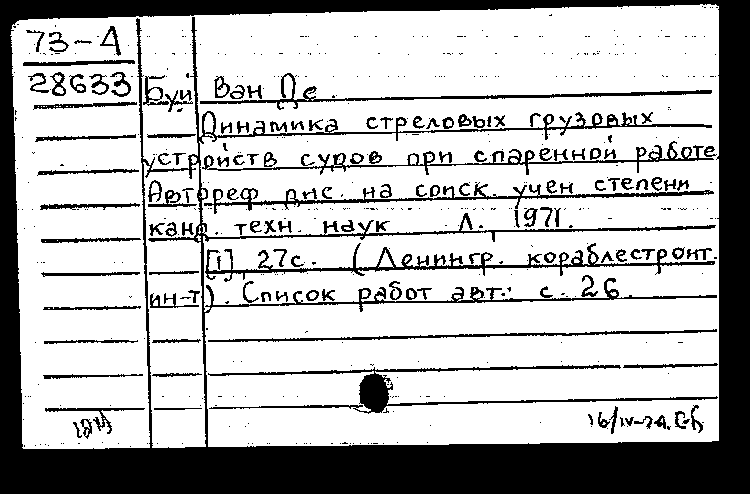 73-А
28633
Буй Ван Де.
Динамика стреловых грузовых
устройств судов при спаренной работе.
Автореф дис. на соиск. учен степени
канд. техн. наук Л., 1971.
[1], 27с. (Ленингр. кораблестроит.
ин-т). Список работ авт.: с. 26.